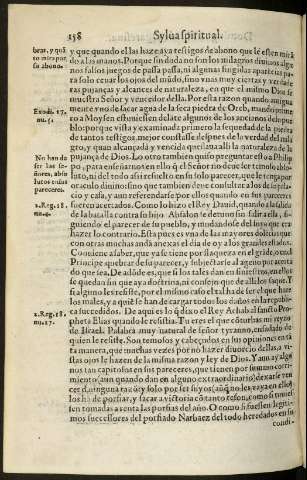 158 Sylua spiritual.
brar, y quẽ
so mira por
su abono.
y que quando el las haze aya testigos de abono que lè esten mirã
do a las manos. Porque sin dada no son los milagros diuinos algu
nos falsos juegos de passa passa, ni algunas fingidas apariẽcias pa
ra solo cuar los ojos del mũdo, sino vnas muy ciertas y verdade
ras pujanças y alcances de naturaleza, en que el mismo Dios se
muestra Señor y vencedor della. Por esta razon quando antigua
Exodi. 17.
nu. 5.
mente vuo de sacar agua de la seca piedra de Oreb, mando prime
ro a Moysen estuuiessen delãte algunos de los ancianos del pue
blo: porque vista y examinada primero la sequedad de la piedra
de tantos testigos, mejor constasse despues de la verdad del mila
gro, y quan alcançada y vencida quedaua alli la naturaleza de la
No han de
ser las se-
ñores, abso
lutos en sus
pareceres.
pujança de Dios. Lo otro tambien quiso preguntar esso a Philip
po, para enseñarnos en ello q̃ el Señor no deue ser tan solo abso-
luto, ni del todo assi resuelto en su solo parecer, que le tenga por
oraculo diuino: sino que tambien deue consultar a los de su pala-
cio y casa, y aun refrendarse por ellos quando en sus pareceres
2. Reg. 18.
nu. 4.
fueren acertados. Como lo hizo el Rey Dauid, quando a la salida
de la batalla contra su hijo Absalon se detuuo sin salir a ella, si-
guiendo el parecer de su pueblo, y mudando del suyo que era
hazer lo contrario. Esta pues es vna de las mayores dolencias que
con otras muchas anda anexas el dia de oy a los grandes estados.
Conuiene a saber, que ya se tiene por flaqueza en el grãde, o en el
Principe apearse de su parecer, y subjectarse al ageno por acerta
do que sea. De adõde es, que si los tales dan en siniestros, en ellos
se quedan sin que aya doctrina, ni consejo que de alli los saque. Y
si alguno le resiste, por el mismo caso està el hazedor del que haze
los males, y a quiẽ se han de cargar todos los daños en la republi
2. Reg. 18.
nu. 17.
ca sucedidos. De aqui es lo q̃ dixo el Rey Achab al santo Pro-
pheta Elias quando le resistia. Tu eres el que cõturbas mi reyno
de Israel. Palabra muy natural de señor tyranno, enfadado de
quien le resiste. Son temosos y cabeçudos en sus opiniones en tã
ta manera, que muchas vezes por no hazer diuorcio dellas, a vi-
stas ojos le hazen de la misma razon y ley de Dios. Y aun ay algu
nos tan capitosos en sus pareceres, que tienen por summo corri-
miento (aun quando dan en alguno extraordinario) dexarse ven
cer de ninguna razõ: y solo por ser suyos (aũq̃ no les vaya en ello)
los ha de porfiar, y sacar a victoria cõ tanto teson, como si tuuie
sen tomadas a renta las porfias del año. O como si fuessen legiti-
mos successores del porfiado Narbaez del todo heredados en su
condi-